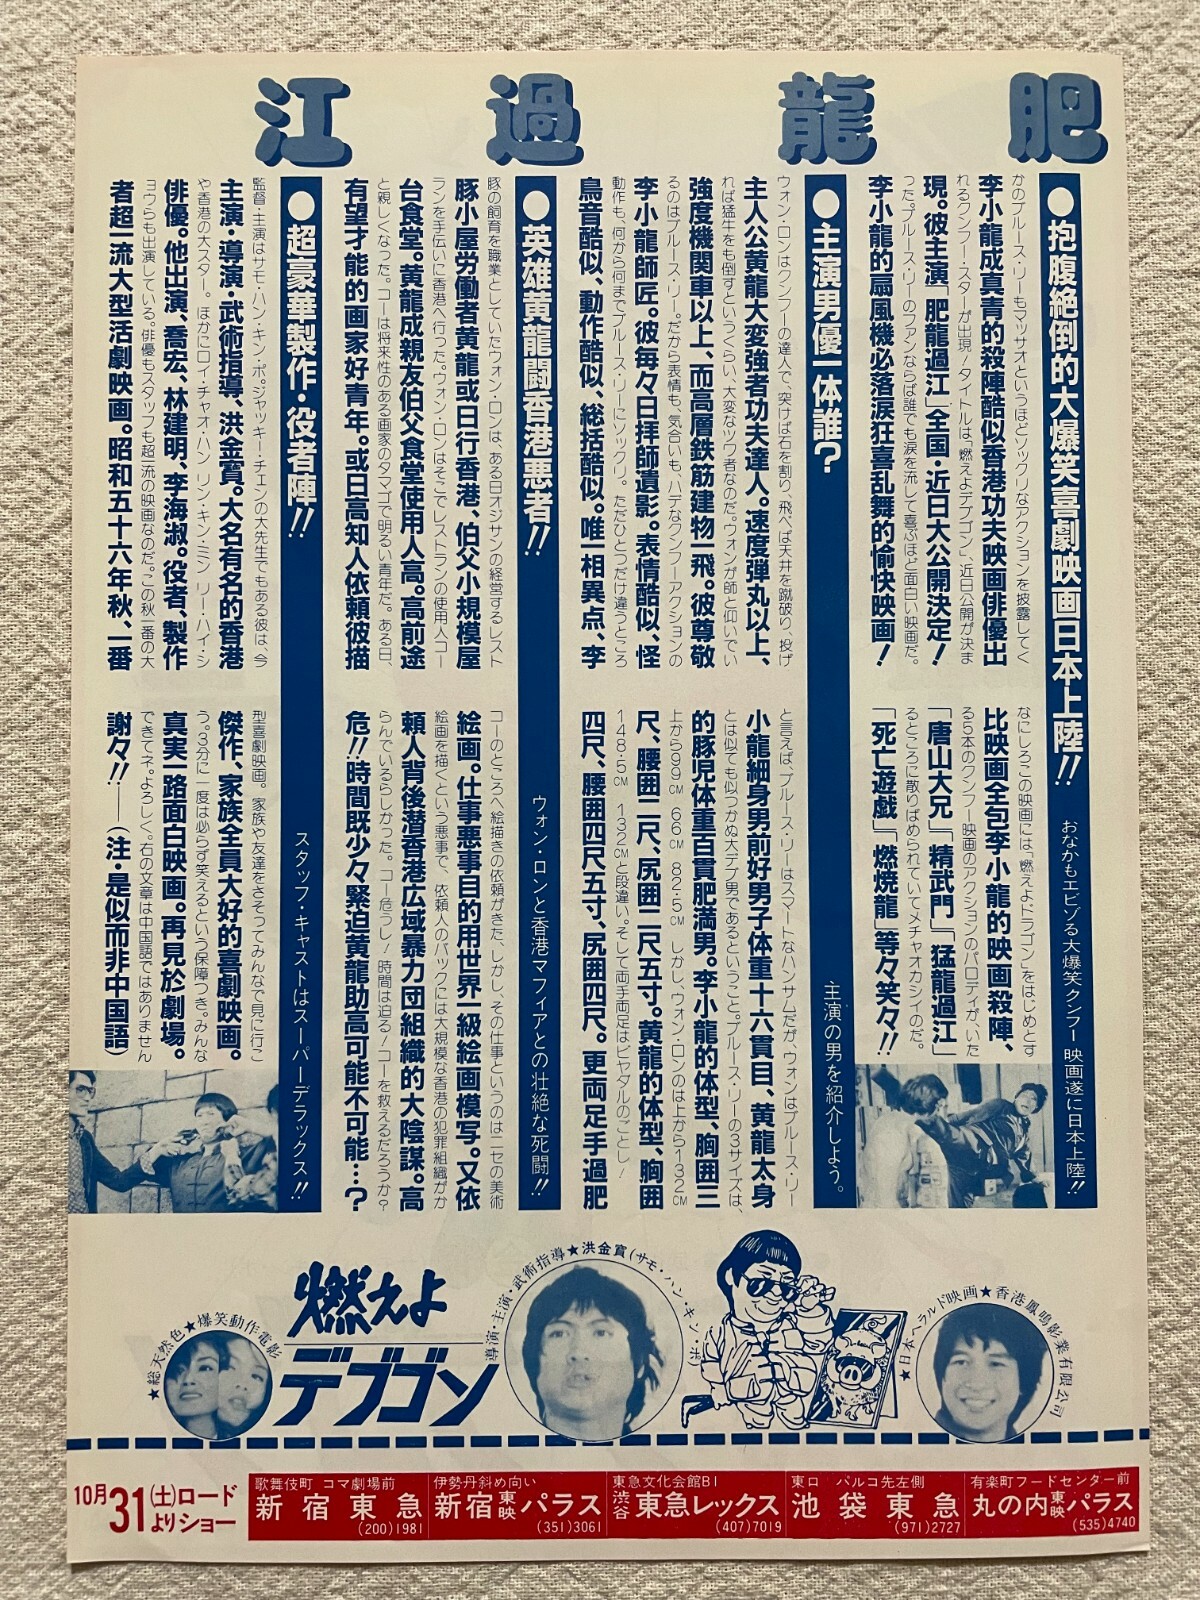 肥龍過江
●抱腹絶倒的大爆笑喜劇映画日本上陸!! おなかもエビゾる大爆笑クンフー映画遂に日本上陸!!
かのブルース・リーもマッサオというほどソックリなアクションを披露してく
李小龍成真青的殺陣酷似香港功夫映画俳優出
れるクンフー・スターが出現！タイトルは「燃えよデブゴン」、近日公開が決ま
現。彼主演「肥龍過江」全国・近日大公開決定！
った。ブルース・リーのファンならば誰でも涙を流して喜ぶほど面白い映画だ。
李小龍的扇風機必落涙狂喜乱舞的愉快映画！
なにしろこの映画には「燃えよドラゴン」をはじめとす
比映画全包李小龍的映画殺陣、
る5本のクンフー映画のアクションのパロディが、いた
「唐山大兄」「精武門」「猛龍過江」
るところに散りばめられていてメチャオカシイのだ。
「死亡遊戯」「燃焼龍」等々笑々!!
●主演男優一体誰？ 主演の男を紹介しよう。
ウォン・ロンはクンフーの達人で、突けば石を割り、飛べば天井を蹴破り、投げ
主人公黄龍大変強者功夫達人。速度弾丸以上、
れば猛牛をも倒すというくらい、大変なツワ者なのだ。ウォンが師と仰いでい
強度機関車以上、而高層鉄筋建物一飛。彼尊敬
るのはブルース・リー。だから表情も、気合いも、ハデなクンフーアクションの
李小龍師匠。彼毎々日拝師遺影。表情酷似、怪
動作も、何から何までブルース・リーにソックリ。ただひとつだけ違うところ
鳥音酷似、動作酷似、総括酷似。唯一相異点、李
と言えば、ブルース・リーはスマートなハンサムだが、ウォンはブルース・リー
小龍細身男前好男子体重十六貫目、黄龍太身
とは似ても似つかぬ大デブ男であるということ。ブルース・リーの3サイズは、
的豚児体重百貫肥満男。李小龍的体型、胸囲三
上から99㎝ 66㎝ 82·5㎝ しかし、ウォン・ロンのは上から132㎝
尺、腰囲二尺、尻囲二尺五寸。黄龍的体型、胸囲
148·5㎝ 132㎝と段違い。そして両手両足はビヤダルのごとし！
四尺、腰囲四尺五寸、尻囲四尺。更両足手過肥
●英雄黄龍闘香港悪者!! ウォン・ロンと香港マフィアとの壮絶な死闘!!
豚の飼育を職業としていたウォン・ロンは、ある日オジサンの経営するレスト
豚小屋労働者黄龍或日行香港、伯父小規模屋
ランを手伝いに香港へ行った。ウォン・ロンはそこでレストランの使用人コー
台食堂。黄龍成親友伯父食堂使用人高。高前途
と親しくなった。コーは将来性のある画家のタマゴで明るい青年だ。ある日、
有望才能的画家好青年。或日高知人依頼彼描
コーのところへ絵描きの依頼がきた、しかし、その仕事というのはニセの美術
絵画。仕事悪事目的用世界一級絵画模写。又依
絵画を描くという悪事で、依頼人のバックには大規模な香港の犯罪組織がか
頼人背後潜香港広域暴力団組織的大陰謀。高
らんでいるらしかった。コー危うし！時間は迫る！コーを救えるだろうか？
危!!時間既少々緊迫黄龍助高可能不可能…？
●超豪華製作・役者陣!! スタッフ・キャストはスーパーデラックス!!
監督・主演はサモ・ハン・キン・ポ。ジャッキー・チェンの大先生でもある彼は、今
主演・導演・武術指導、洪金寳。大名有名的香港
や香港の大スター。ほかにロイ・チャオ・ハン リン・キン・ミン リー・ハイ・シ
俳優。他出演、喬宏、林建明、李海淑。役者、製作
ョウらも出演している。俳優もスタッフも超一流の映画なのだ。この秋一番の大
者超一流大型活劇映画。昭和五十六年秋、一番
型喜劇映画。家族や友達をさそってみんなで見に行こ
傑作、家族全員大好的喜劇映画。
う。3分に一度は必らず笑えるという保障つき。みんな
真実一路面白映画。再見於劇場。
できてネ。よろしく。右の文章は中国語ではありません
謝々!!——(注・是似而非中国語)
★総天然色★爆笑動作電影
燃えよ
デブゴン
導演・主演・武術指導★洪金寳(サモ・ハン・キン・ポ)
★日本ヘラルド映画★香港鳳鳴影業有限公司
10月31(土)よりロードショー
歌舞伎町 コマ劇場前
新宿東急
(200)1981
伊勢丹斜め向い
新宿東映パラス
(351)3061
東急文化会館B1
渋谷東急レックス
(407)7019
東口 パルコ先左側
池袋東急
(971)2727
有楽町フードセンター前
丸の内東映パラス
(535)4740